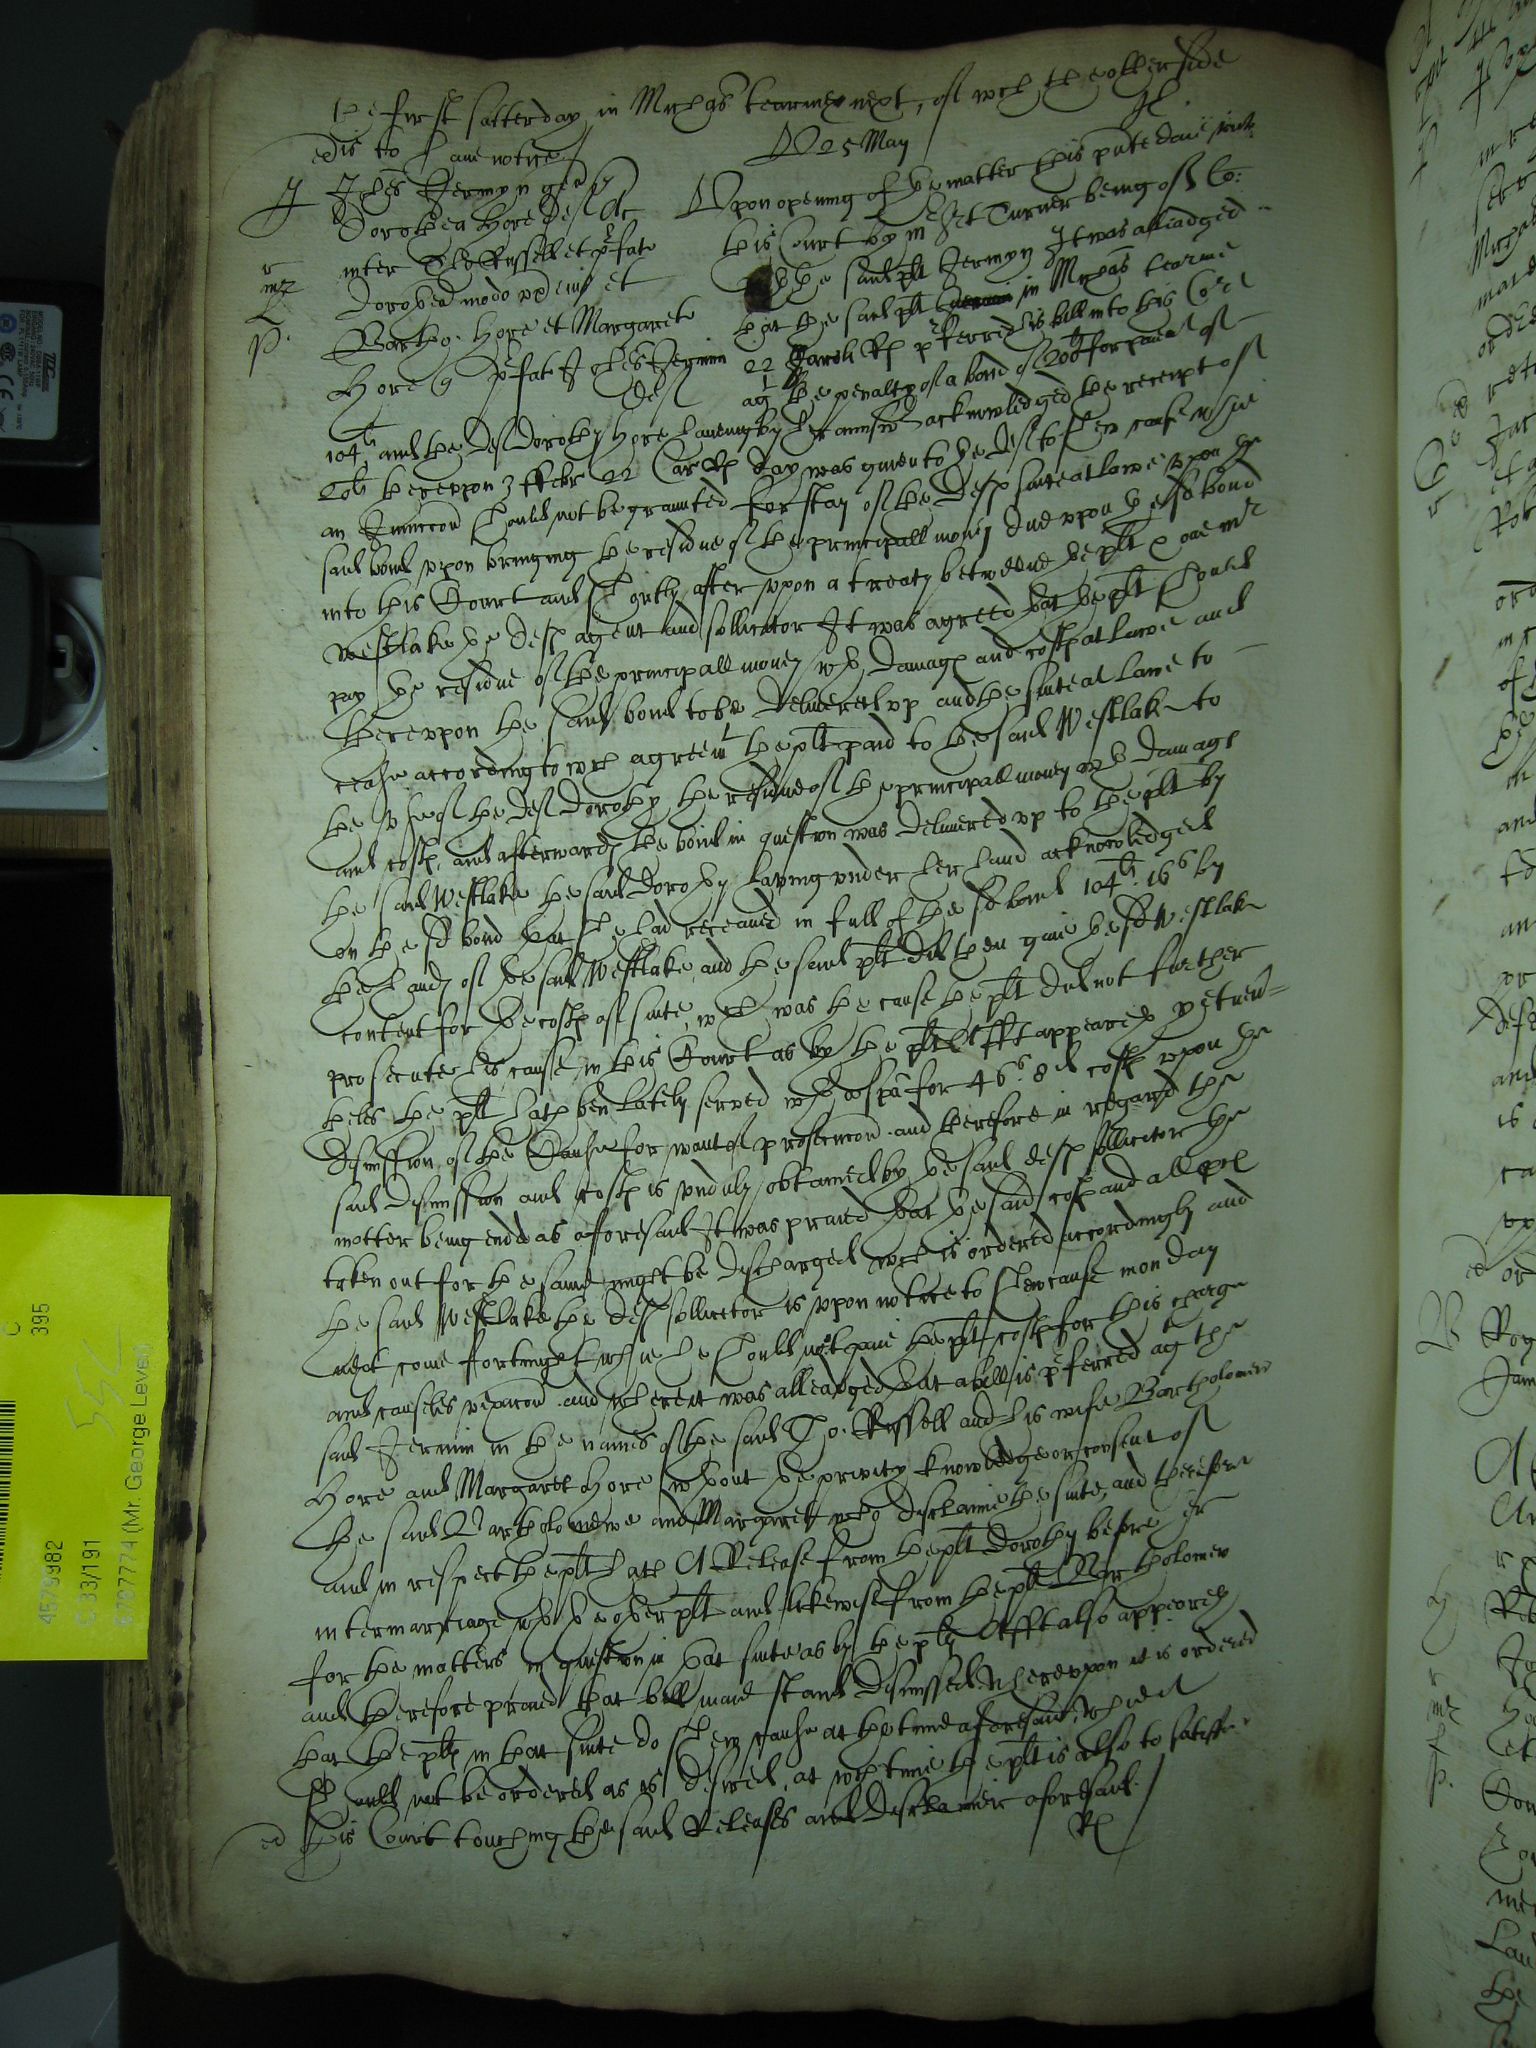 the first satterday in Mychas tearme next, of wch the other side
is to have notice /
D 25 May
J Johes Jermyn gen qr
Dorothea Hore def Ac
inter Tho Russell et prfat
Dorothea modo vx eius et
Bartho: Hore et Margaret
Hore q prfat Johes Jermin
def
Vpon opening of the matter this pnte daie vnto
this Court by mr Srt Turner being of Co:
wth the said plt Jermyn It was alleadged
that the said plt in Mychas tearme
22 Caroli Rs prferred his bill into this Cort
agt the penalty of a bond of 200li for paiemt of
104li and the def Dorothy Hore having by her answr acknowledged the receipt of
20li herevpon 3 ffebr 22 Car Rs day was given to the def to shew cause whie
an Iniunccon should not be graunted for stay of the defts suite at lawe vpon the
said bond vpon bringing the residue of the principall money due vpon the sd bond
into this Court and shortly after vpon a treaty betweene the plt & one mr
Westlake the defts agent and sollicitor It was agreed that the plt should
pay the residue of the principall money wth damags and costs at lawe and
therevpon the said bond to be delivered vp and the suite at lawe to
cease according to wch agreemt the plt paid to the said Westlake to
the vse of the def Dorothy the residue of the principall money wth damags
and costs, and afterwards the bond in question was delivered vp to the plt by
the said Westlake the said Dorothy having vnder her hand acknowledged
on the sd bond that she had receaved in full of the sd bond 104li. 16s by
the hands of the said Westlake, and the said plt did then give the sd Westlake
content for the costs of suite, wch was the cause the plt did not further
prosecute his cause in this Court as by the plts Afft appeareth yet never=
theles the plt hath ben lately served wth a spa for 46s. 8d costs vpon the
dismission of the Cause for want of prosecucon and therefore in regard the
said dismission and costs is vnduly obtained by the said defts sollicitor the
matter being ended as afforesaid It was praied that the said costs and all pces
taken out for the same might be discharged wch is ordered accordingly and
the said Westlake the defts sollicitor is vpon notice to shew cause monday
next come fortnight whie he should not paie the plt costs for this charge
and causeles vexacon and where it was alleadged that a bill is prferred agt the
said Jermin in the names of the said Tho. Russell and his wife Bartholomew
Hore and Margaret Hore wthout the privity knowledge or consent of
the said Bartholomewe and Margaret who disclaime the suite, and therefore
and in respect the plt hath A Release from the plt Dorothy before her
intermarriage wth the other plt and likewise from the plt Bartholomew
for the matters in question in that suite as by the plts Afft also appeareth
and therefore praied that bill maie stand dismissed Wherevpon it is ordered
that the plts in that suite do shew cause at the time aforesaid Whie it
should not be ordered as is desired, at wch time the plt is also to satisfie
this Court touching the said Releases and disclaimer aforesaid. /
Rs
C
395
55C
4579982
C 33/191
(Mr. George Lever)